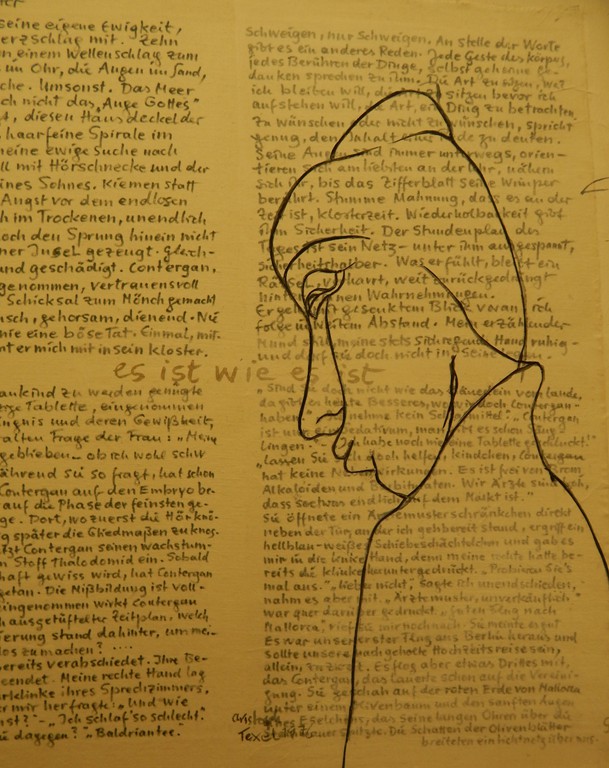 seine eigene Ewigkeit,
erzschlag mit. Zehn
en einem Wellenschlag zum
im Ohr, die Augen im Sand,
che. Umsonst. Das Meer
ch nicht das "Auge Gottes"
t, diesen Hausdeckel der
haarfeine Spirale im
meine ewige Suche nach
ll mit Hörschnecke und der
ines Sohnes. Kiemen statt
Angst vor dem endlosen
h im Trockenen, unendlich
och den Sprung hinein nicht
ner Insel gezeugt. Gleich-
und geschädigt. Contergan,
genommen, vertrauensvoll
Schicksal zum Mönch gemacht
nsch, gehorsam, dienend. Nie
mie eine böse Tat. Einmal, mit-
nt er mich mit in sein Kloster.
es ist wie es ist
ankind zu werden genügte
rge Tablette, eingenommen
ngnis und deren Gewißheit,
alten Frage der Frau: "Mein
geblieben - ob ich wohl schw
ährend sie so fragt, hat schon
Contergan auf den Embryo be-
auf die Phase der feinsten ge-
ge. Dort, wo zuerst die Hörknö-
g später die Gliedmaßen zu knos-
tzt Contergan seinen wachstum-
n Stoff Thalodomid ein. Sobald
haft gewiss wird, hat Contergan
getan. Die Mißbildung ist voll-
ingenommen wirkt Contergan
h ausgetüftelter Zeitplan, welch
ferung stand dahinter, um mei-
los zu machen? ....
bereits verabschiedet. Ihre Be-
endet. Meine rechte Hand lag
rklinke ihres Sprechzimmers,
er mir herfragte: "Und wie
nst?" - "Ich schlaf' so schlecht."
ie dagegen?" "Baldriantee."
Schweigen, nur Schweigen. An Stelle der Worte
gibt es ein anderes Reden. Jede Geste des Körpers,
jedes Berühren der Dinge, selbst geheime Ge-
danken sprechen zu ihm. Die Art zu sitzen, wo
ich bleiben will, die zu sitzen bevor ich
aufstehen will, Art, ein Ding zu betrachten,
zu wünschen oder nicht zu wünschen, spricht
genug, den Inhalt einer Rede zu deuten.
Seine Augen sind immer unterwegs, orien-
tieren sich am liebsten an der Uhr, nähern
sich ihr, bis das Zifferblatt seine Wimper
berührt. Stumme Mahnung, dass es an der
Zeit ist, Klosterzeit. Wiederholbarkeit gibt
ihm Sicherheit. Der Stundenplan des
Tages ist sein Netz - unter ihm ausgespannt,
Sicherheitshalber. Was er fühlt, bleibt ein
Rätsel, verharrt, weit zurückgedrängt
hinter Wahrnehmungen.
gesenktem Blick voran, ich
folge in weitem Abstand. Mein erzählender
Mund still, meine stets sich regende Hand ruhig -
und doch nicht in Seine
nicht wie das vom Lande,
da gibt es heute Besseres, wo doch Contergan -
haben nehme kein Schlafmittel". "Contergan
ist nur ein Sedativum, man es schon Säug-
lingen -" "Ich habe noch nie eine Tablette geschluckt."
"Lassen Sie sich doch helfen, Kindchen, Contergan
hat keine Nebenwirkungen. Es ist frei von Brom
Alkaloiden und Barbituraten. Wir Ärzte sind froh,
dass so etwas endlich auf dem Markt ist."
Sie öffnete ein Ärztemusterschränkchen direkt
neben der Tür, an der ich gehbereit stand, ergriff ein
hellblau-weißes Schiebeschächtelchen und gab es
mir in die linke Hand, denn meine rechte hatte be-
reits die Klinke heruntergedrückt. "Probieren Sie's
mal aus." "Lieber nicht", sagte ich unentschieden,
nahm es aber mit. "Ärztemuster, unverkäuflich"
war quer darüber gedruckt. "Guten Flug nach
Mallorca", rief sie mir noch nach. Sie meinte es gut
Es war unser erster Flug aus Berlin heraus und
sollte unsere nachgeholte Hochzeitsreise sein,
allein, zu zweit. Es flog aber etwas Drittes mit,
das Contergan, das lauerte schon auf die Vereini-
gung. Sie geschah auf der roten Erde von Mallorca
unter einem Olivenbaum und den sanften Augen
eines Eselchens, das seine langen Ohren über die
Mauer spitzte. Die Schatten der Olivenblätter
breiteten ein Lichtnetz über uns.
Texel